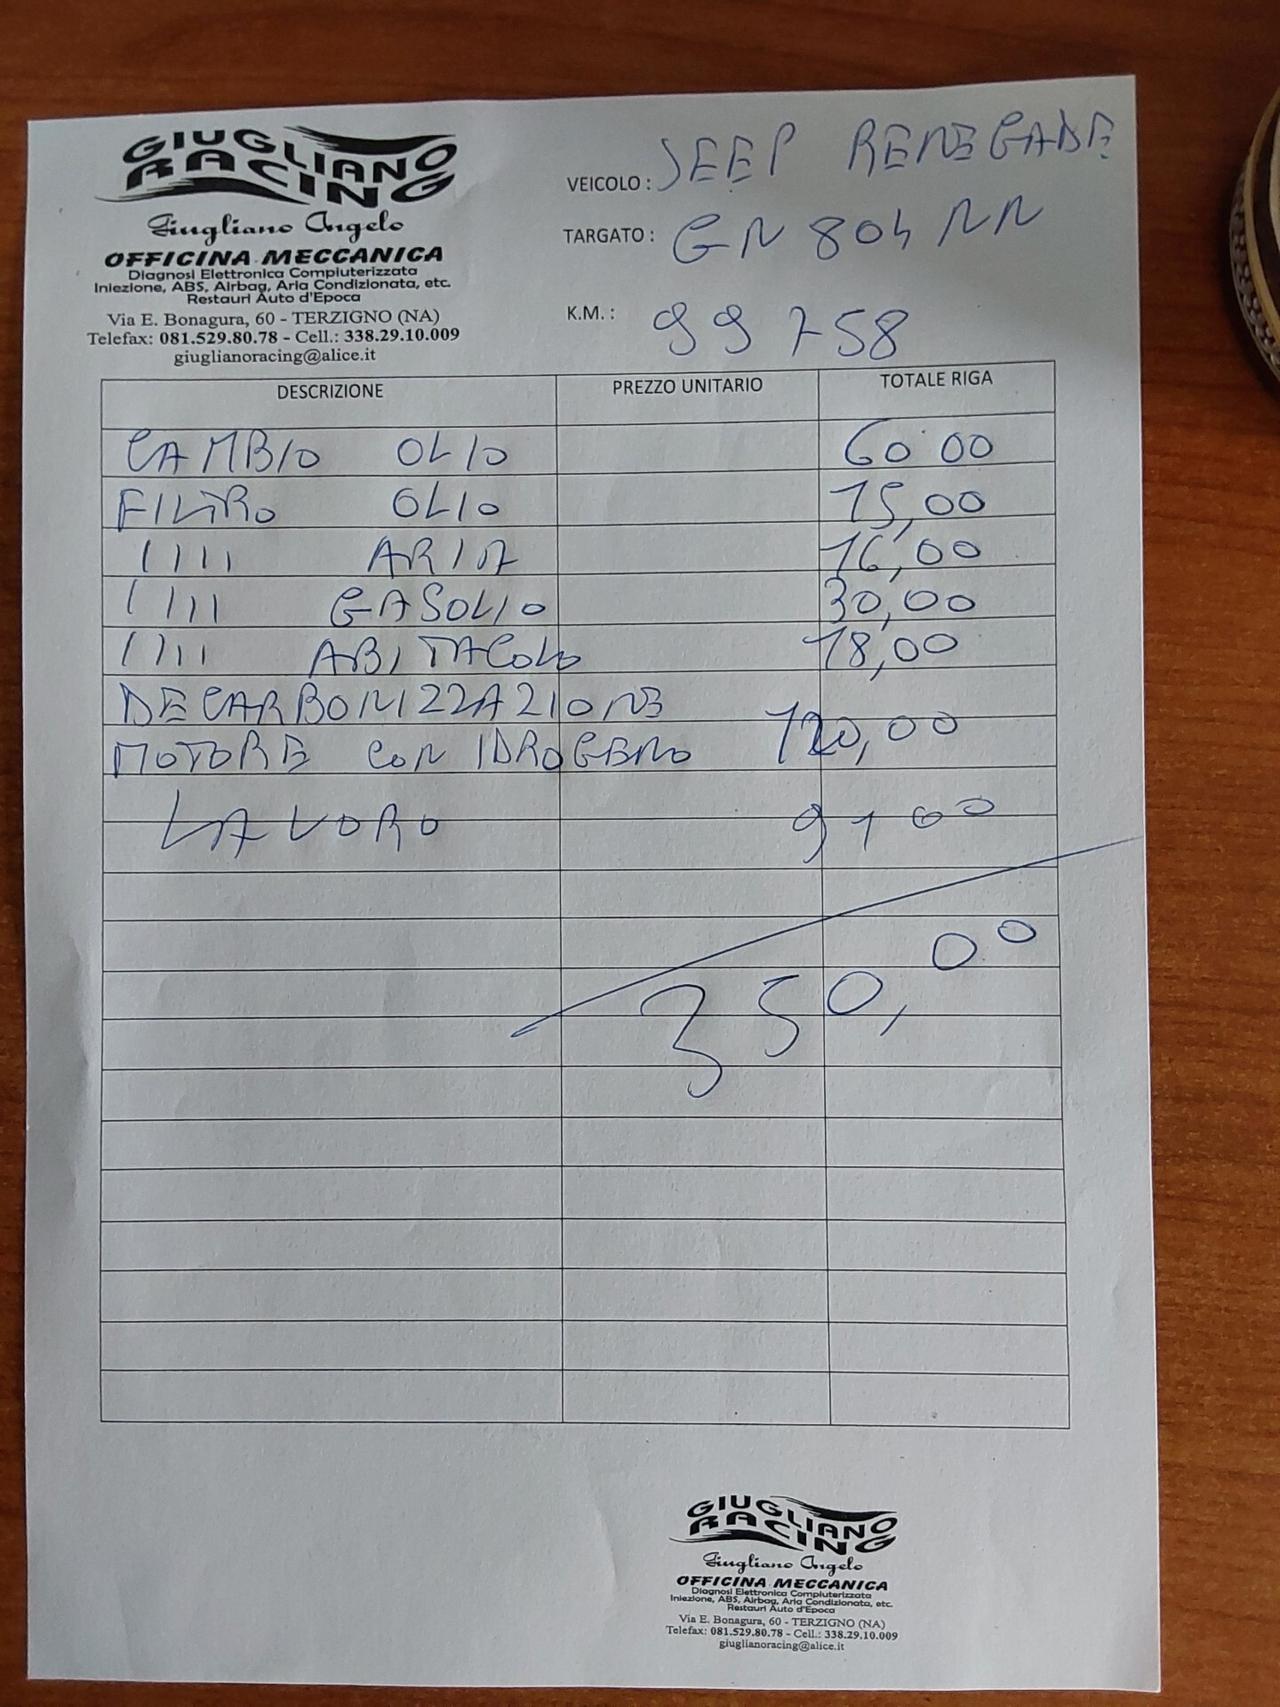 GIUGLIANO
RACING
Giugliano Angelo
OFFICINA MECCANICA
Diagnosi Elettronica Compiuterizzata
Iniezione, ABS, Airbag, Aria Condizionata, etc.
Restauri Auto d'Epoca
Via E. Bonagura, 60 - TERZIGNO (NA)
Telefax: 081.529.80.78 - Cell.: 338.29.10.009
giuglianoracing@alice.it
VEICOLO : JEEP RENEGADE
TARGATO : GN 804 NN
K.M. : 99758
DESCRIZIONE PREZZO UNITARIO TOTALE RIGA
CAMBIO OLIO 60.00
FILTRO OLIO 15,00
IIII ARIA 16,00
IIII GASOLIO 30,00
IIII ABITACOLO 18,00
DECARBONIZZAZIONE
MOTORE CON IDROGENO 120,00
LAVORO 91 00
350,00
GIUGLIANO
RACING
Giugliano Angelo
OFFICINA MECCANICA
Diagnosi Elettronica Compiuterizzata
Iniezione, ABS, Airbag, Aria Condizionata, etc.
Restauri Auto d'Epoca
Via E. Bonagura, 60 - TERZIGNO (NA)
Telefax: 081.529.80.78 - Cell.: 338.29.10.009
giuglianoracing@alice.it